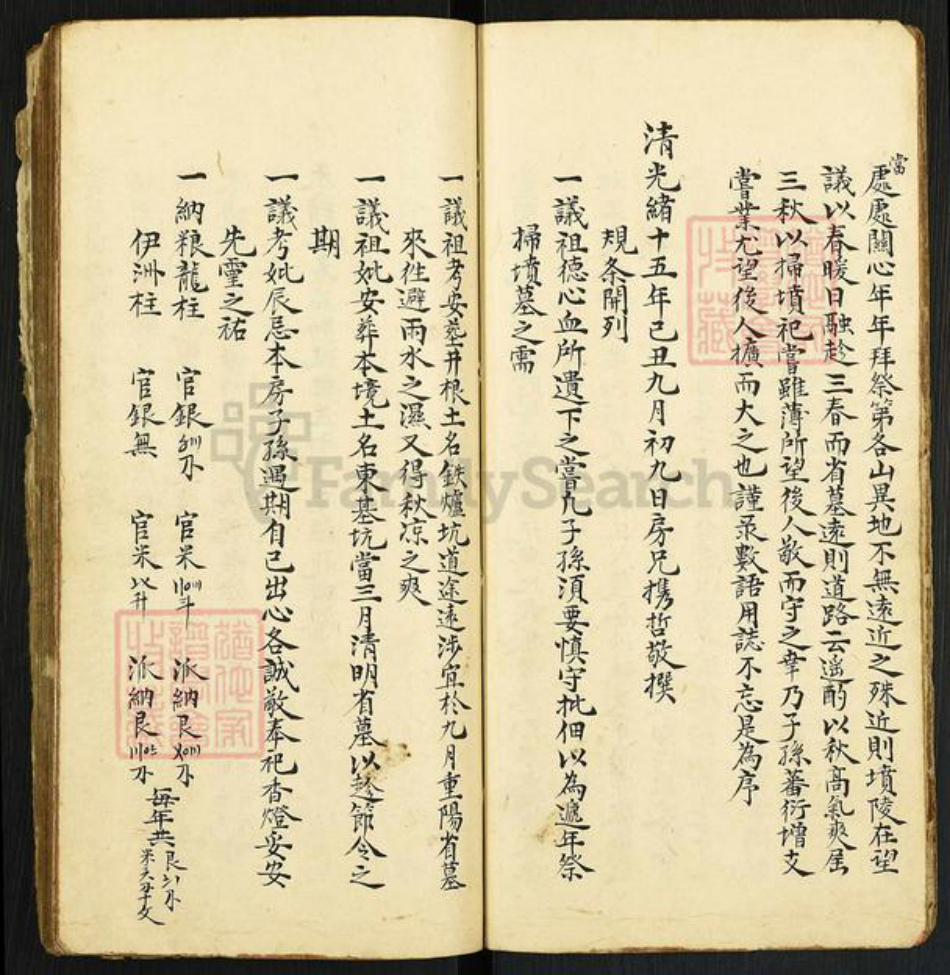 當
處處關心年年拜祭第各山異地不無遠近之殊近則墳陵在望
議以春暖日融趁三春而省墓遠則道路云遙酌以秋高氣爽屆
三秋以掃墳祀嘗雖薄所望後人敬而守之幸乃子孫蕃衍增支
嘗業尤望後人擴而大之也謹录數語用誌不忘是為序
清光緒十五年己丑九月初九日房兄携哲敬撰
規条開列
一議祖德心血所遺下之嘗凢子孫須要慎守批佃以為遞年祭
掃墳墓之需
一議祖考安塟井根土名鉄爐坑道途遠涉宜於九月重陽省墓
來徃避雨水之濕又得秋凉之爽
一議祖妣安葬本境土名東基坑當三月清明省墓以趁節令之
期
一議考妣辰忌本房子孫遇期自己出心各誠敬奉祀香燈妥安
先靈之祐
一納粮龍柱 官銀 官米 派納艮
伊洲柱 官銀無 官米 升 派納艮
每年共
FamilySearch